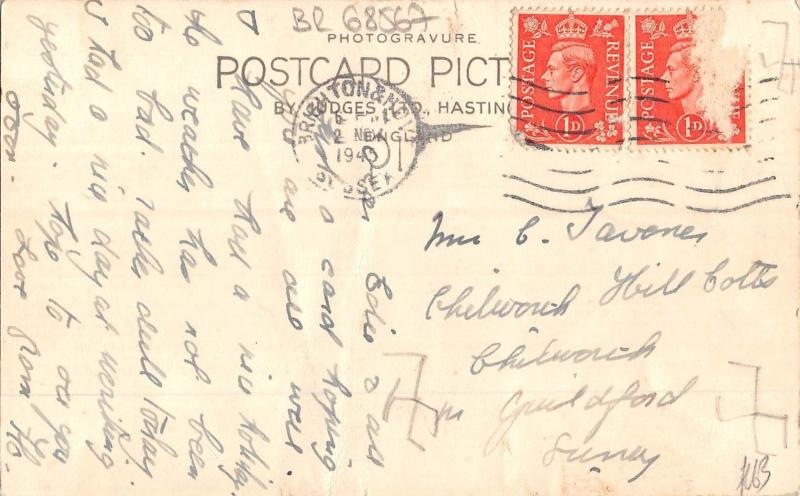 BR 68567
PHOTOGRAVURE
POSTCARD PICT
BY JUDGES LTD., HASTIN
ENGLAND
BRIGHTON & HOVE
2 NOV
194
SUSSEX
POSTAGE REVENUE
1D
POSTAGE
1D
Edie & all
a card hoping
you are all well
I have had a nice holiday
the weather has not been
too bad. rather dull today.
I had a nice day at Worthing
yesterday. hope to see you
soon. Love from Flo.
Mrs C. Tavener
Chilworth Hill Cotts
Chilworth
nr Guildford
Surrey
1163